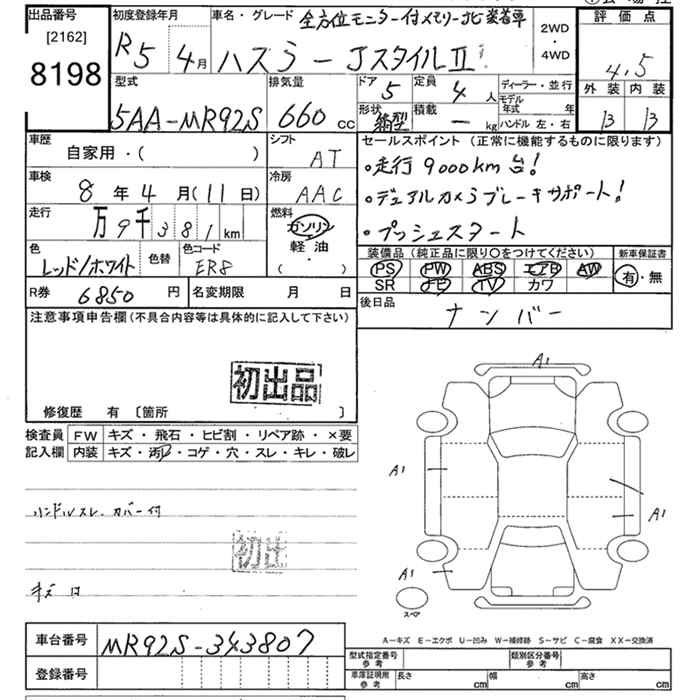 出品番号 [2162] 8198
初度登録年月 R5 4月
車名・グレード 全方位モニター付メモリーナビ装着車
ハスラー JスタイルⅡ
2WD・4WD
評価点 4.5
外装 内装
型式 5AA-MR92S
排気量 660cc
ドア 5 定員 4人
形状 箱型 積載 ー kg
ディーラー・並行
モデル年式 年
ハンドル 左・右
車歴 自家用・( )
シフト AT
車検 8年4月(11日)
冷房 AAC
走行 万9千381km
燃料 ガソリン・軽油・( )
色 レッド/ホワイト 色替 色コード ER8
R券 6850円 名変期限 月 日
セールスポイント(正常に機能するものに限ります)
・走行9000km台!
・デュアルカメラブレーキサポート!
・プッシュスタート
装備品(純正品に限り○をつけてください) 新車保証書
PS PW ABS エアB AW 有・無
SR ナビ TV カワ
後日品 ナンバー
注意事項申告欄(不具合内容等は具体的に記入して下さい)
初出品
修復歴 有〔箇所 〕
検査員 FW キズ・飛石・ヒビ割・リペア跡・×要
記入欄 内装 キズ・汚レ・コゲ・穴・スレ・キレ・破レ
ハンドルスレ カバー付
初出
A1
A1
A1
A1
スペア
A-キズ E-エクボ U-凹み W-補修跡 S-サビ C-腐食 XX-交換済
車台番号 MR92S-343807
登録番号
型式指定番号 参考 類別区分番号 参考
車庫証明用 参考 長さ cm 幅 cm 高さ cm